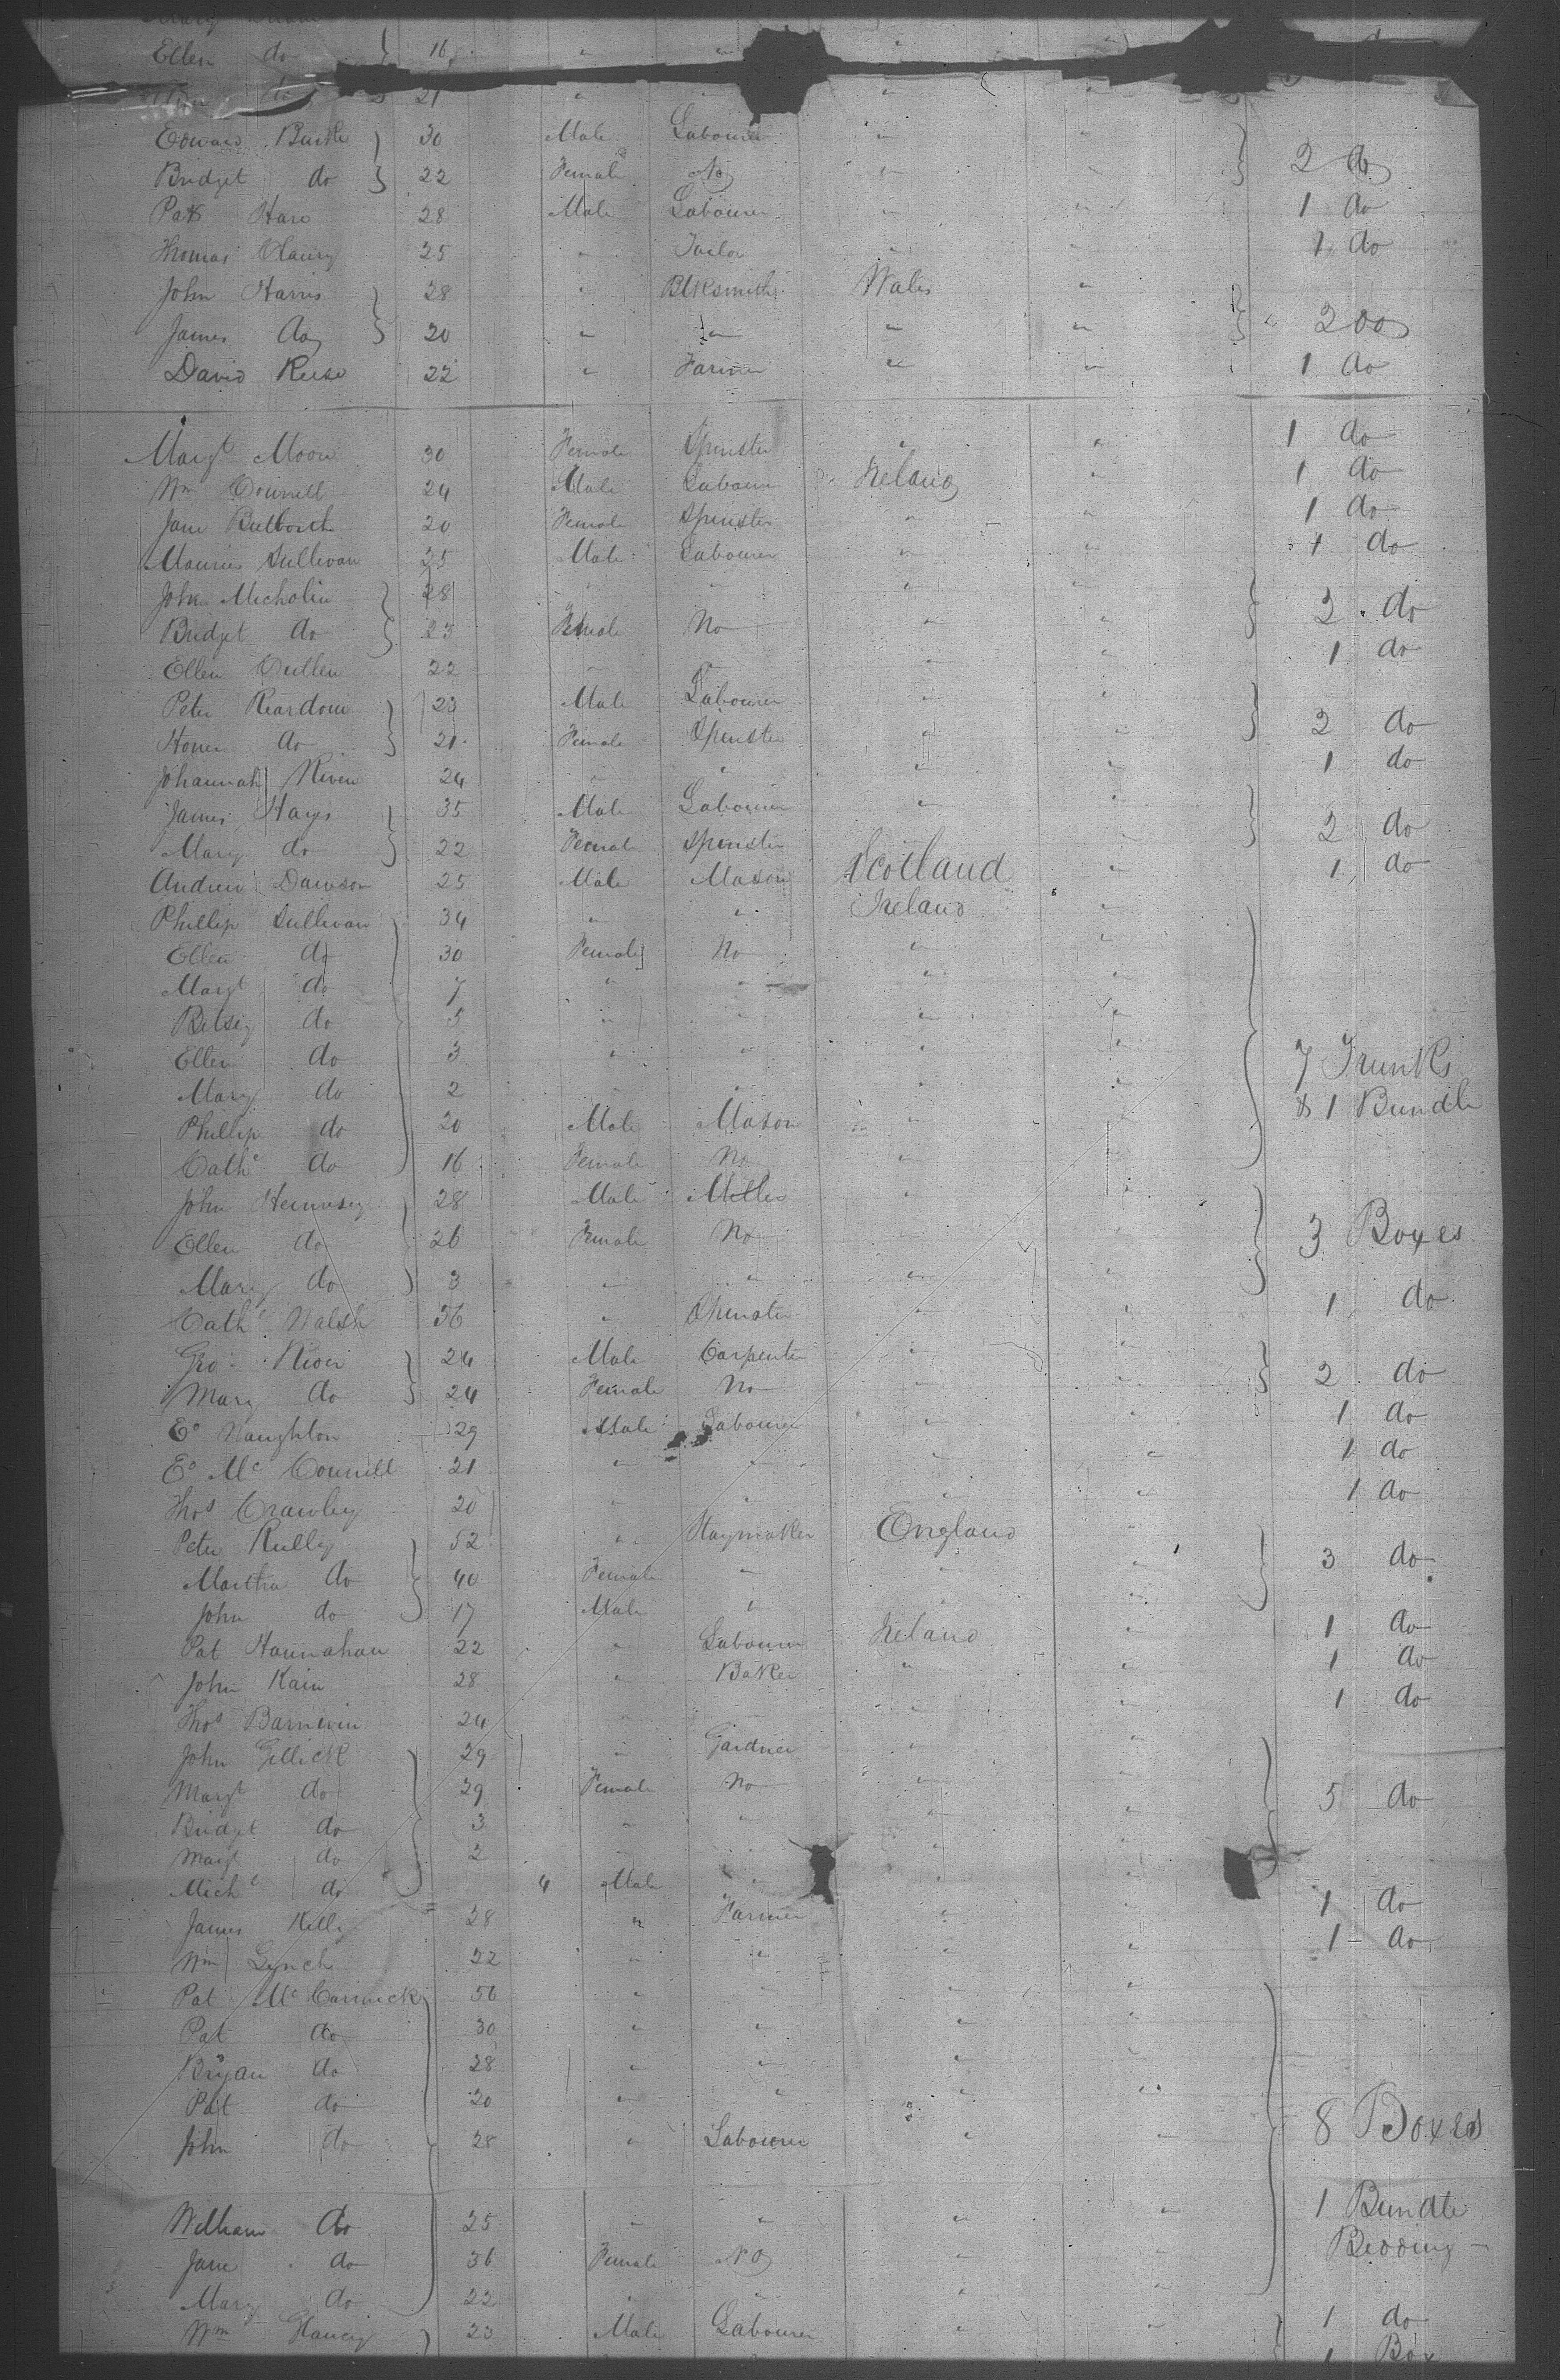 Ellen do } 16 " "
do 21 " "
Edward Burke } 30 Male Labourer " "
Bridget do } 22 Female No " " } 2 do
Patk Hare 28 Male Labourer " " 1 do
Thomas Clancy 25 " Tailor " " 1 do
John Harris } 28 " Blksmith Wales "
James do } 20 " " " " } 2 do
David Reese 22 " Farmer " " 1 do
Margt Moore 30 Female Spinster " " 1 do
Wm Connell 24 Male Labourer Ireland " 1 do
Jane 20 Female Spinster " " 1 do
Maurice Sullivan 25 Male Labourer " " 1 do
John Micholin } 28 " " " "
Bridget do } 23 Female No " " } 2 do
Ellen Cullen 22 " " " " 1 do
Peter Reardon } 23 Male Labourer " "
do } 21 Female Spinster " " } 2 do
Johannah 24 " " " " 1 do
James Hays } 35 Male Labourer " "
Mary do } 22 Female Spinster " } 2 do
Andrew Dawson 25 Male Mason Scotland " 1 do
Phillip Sullivan 34 " " Ireland "
Ellen do 30 Female No " "
Margt do 7 " " " "
Betsey do 5 " " " "
Ellen do 3 " " " "
Mary do 2 " " " " 7 Trunks
Phillip do 20 Male Mason " " & 1 Bundle
Cathe do 16 Female No " "
John Hennesey } 28 Male Miller " "
Ellen do 26 Female No " " } 3 Boxes
Mary do } 3 " " " "
Cathe Walsh 36 " Spinster " " 1 do
Geo } 24 Male Carpenter " "
Mary do } 24 Female No " " } 2 do
Ed Naughton 29 Male Labourer " " 1 do
Ed McConnell 21 " " " " 1 do
Thos Crawley 20 " " " " 1 do
Peter } 52 " Staymaker England
Martha do 40 Female " " " } 3 do
John do } 17 Male " " "
Pat Hannahan 22 " Labourer Ireland " 1 do
John Kain 28 " Baker " " 1 do
Thos 24 " " " " 1 do
John Gillick } 29 " Gardner " "
Margt do 39 Female No " " } 5 do
Bridget do 3 " " " "
Margt do 2 " " " "
Michl do } 4 Male " " "
James Kelly 28 " Farmer " " 1 do
Wm Lynch 22 " " " " 1 do
Pat McCormick 50 " " " "
Pat do 30 " " " "
Bryan do 28 " " " "
Pat do 20 " " " "
John do 28 " Labourer " " 8 Boxes
William do 25 " " " " 1 Bundle
Jane do 36 Female No " " Bedding
Mary do 22 " " " "
Wm Clancy } 23 Male Labourer " " } 1 do
1 Box